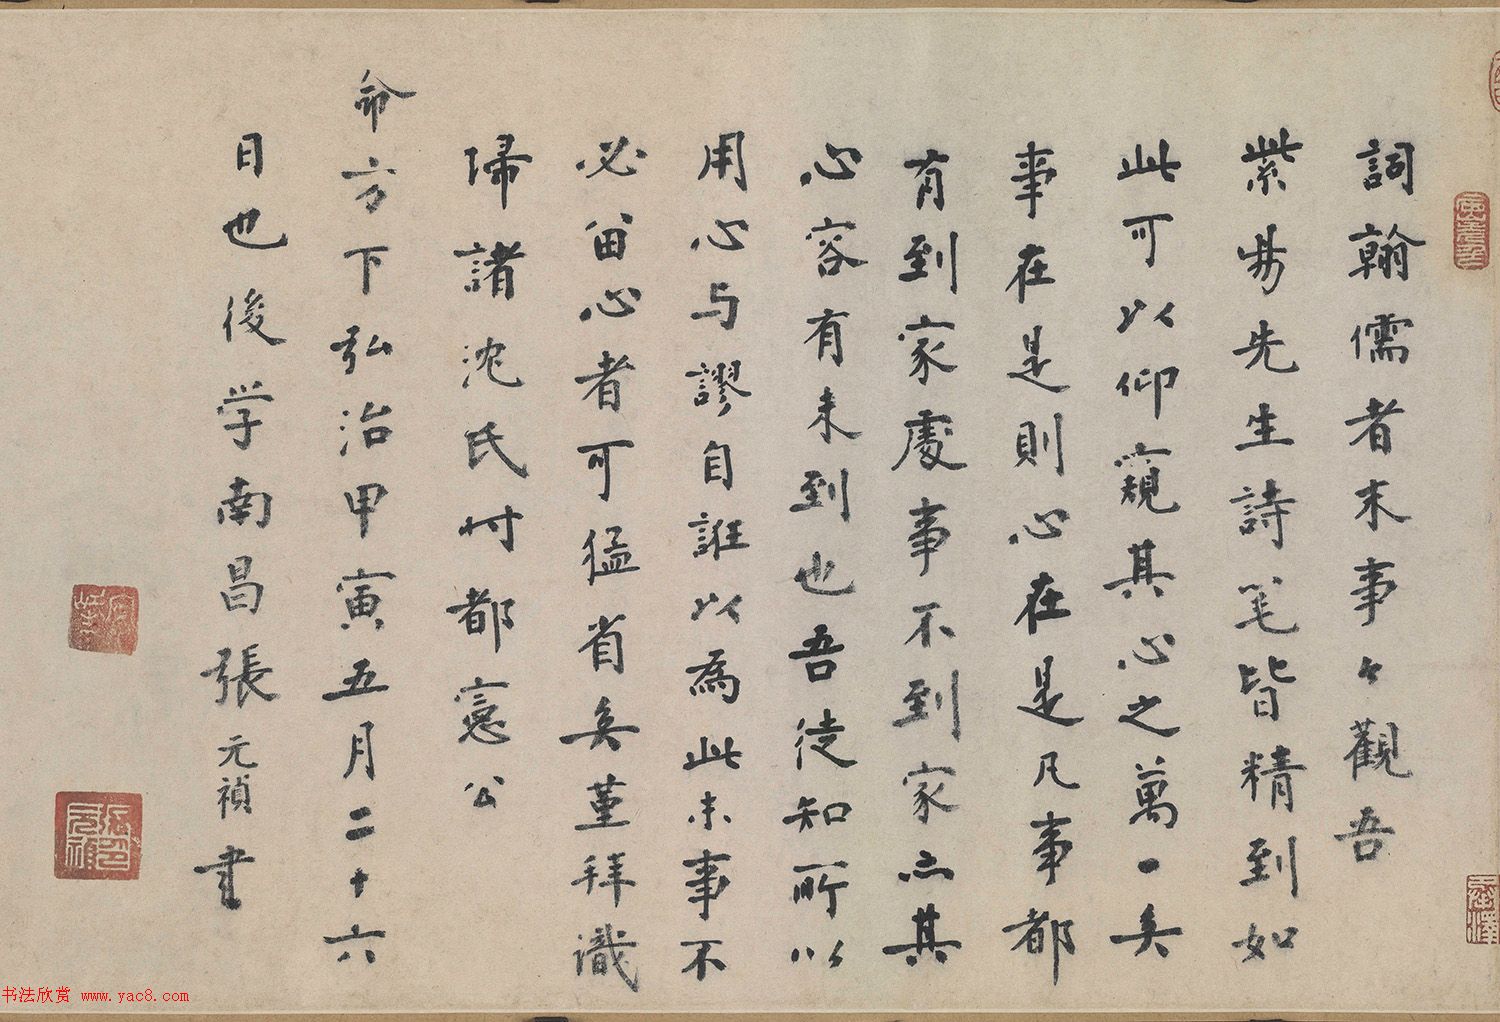 詞翰儒者末事々觀吾
紫昜先生詩笔皆精到如
此可以仰窺其心之萬一矣
事在是則心在是凡事都
有到家處事不到家亦其
心容有未到也吾徒知所以
用心与謬自誑以為此末事不
必留心者可猛省矣堇拜識
歸諸沈氏时都憲公
命方下弘治甲寅五月二十六
日也後学南昌張元禎書
书法欣赏 www.yac8.com